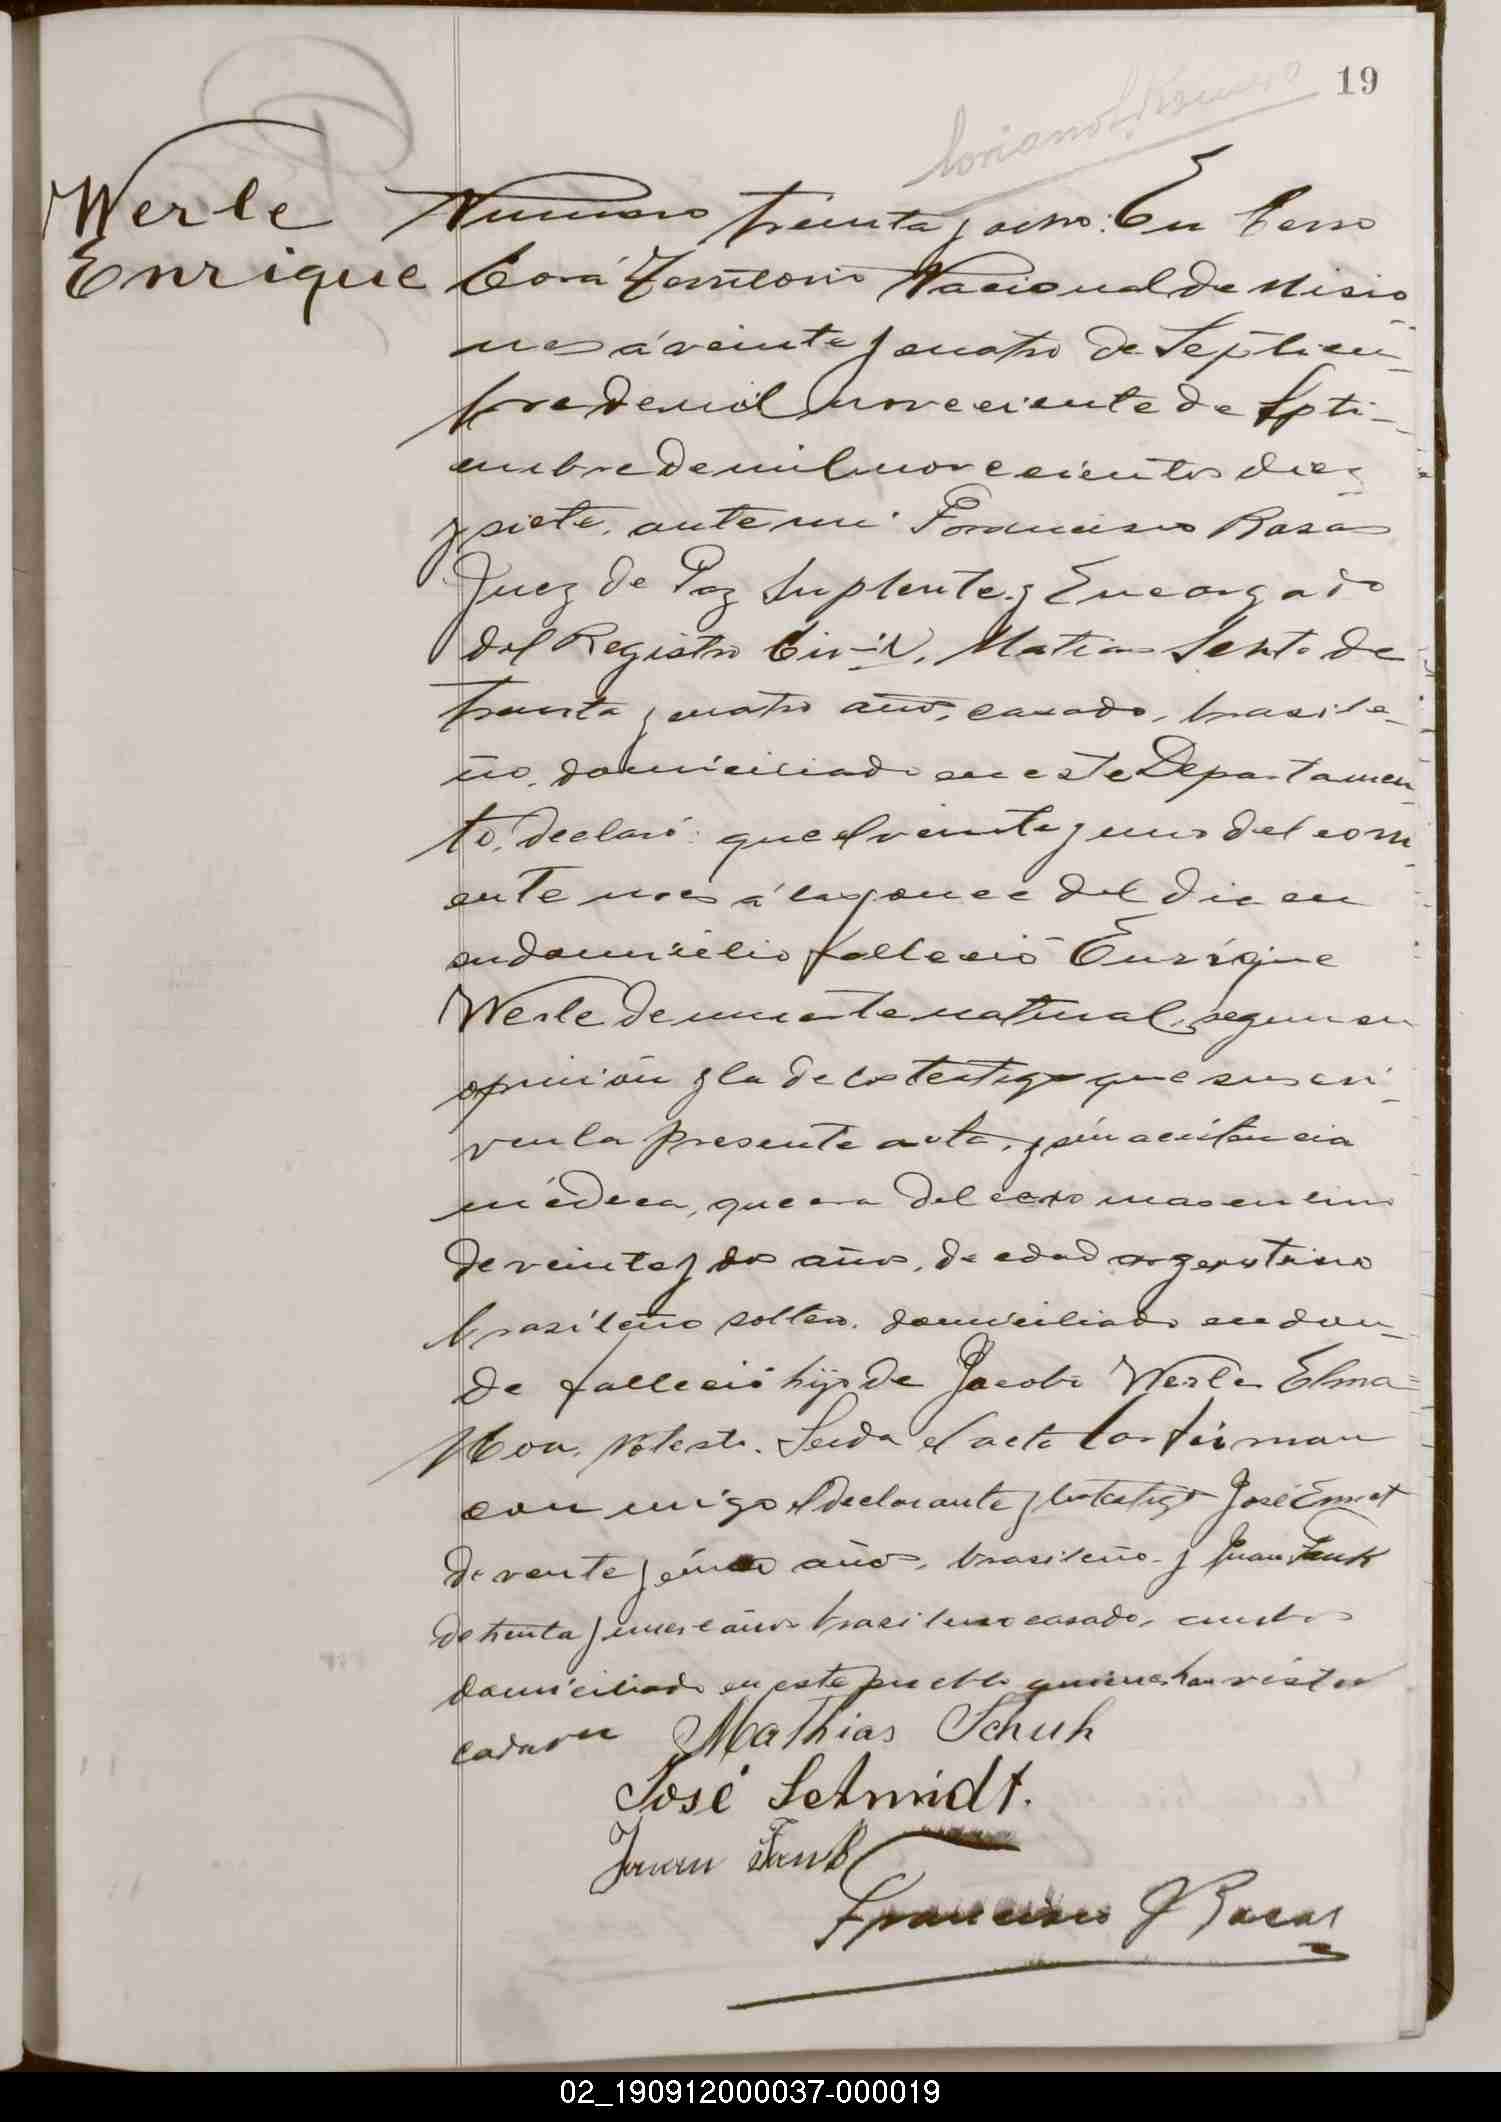 19
Werle
Enrique
Numero treinta y ocho: En Cerro
Corá Territorio Nacional de Misio
nes á veinte y cuatro de Septiem-
bre de mil noveciente de Spti-
embre de mil novecientos diez
y siete, ante mi Francisco Rosas
Juez de Paz Suplente y Encargado
del Registro Civil, Matias de
treinta y cuatro años, casado, brasile-
ño, domiciliado en este Departamen-
to, declaró: que el veinte y uno del corri-
ente mes á las once del dia en
su domicilio falleció Enrique
Werle de muerte natural, segun su
opinión y la de los testigos que suscri-
ven la presente acta, y sin acistencia
médeca, que era del cexo masculino
de veinte y dos años, de edad argentino
brasileño soltero, domiciliado en don-
de falleció hijo de Jacobo Werle
Leida el acta la firman
con migo el declarante y los testigos José
de veinte y cinco años, brasileño y Juan
de treinta y nueve años brasileno casado, ambos
domiciliado en este pueblo quienes han visto el
cadaver
Mathias Schuh
José Schmidt.
Juan
Francisco J Rosas
02_190912000037-000019